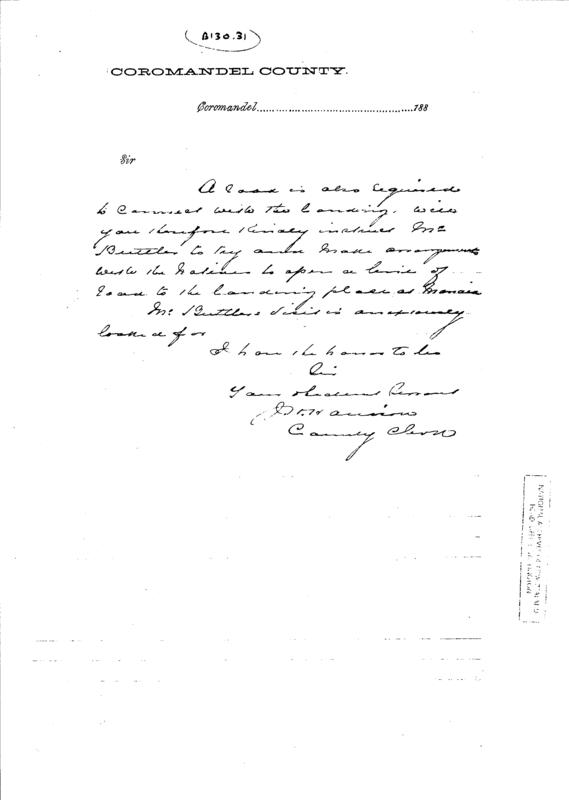 B130.31
COROMANDEL COUNTY.
Coromandel..........................................188
Sir
A road is also required
to connect with the landing. Will
you therefore kindly instruct Mr
Buttler to try and make arrangements
with the Natives to open a line of
road to the landing place at
Mr Buttlers visit is anxiously
looked for
I have the honor to be
Sir
Your obedient Servant
County Clerk
NATIONAL ARCHIVES